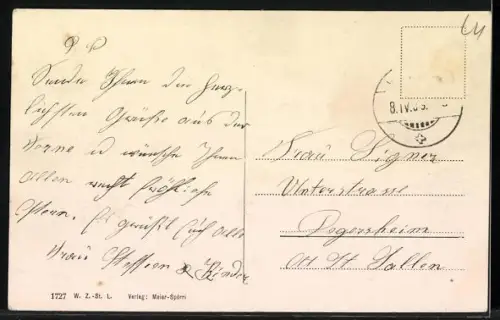 P P
Sende Ihnen die herz-
lichsten Grüße aus der
Ferne u wünsche Ihnen
allen recht fröhliche
Ostern. Es grüßt Euch alle
Frau Steffen & Kinder
Frau Signer
Unterstrasse
Degersheim
Ct St. Gallen
8.IV.09.
64
1727 W. Z.-St. L. Verlag: Maier-Spörri